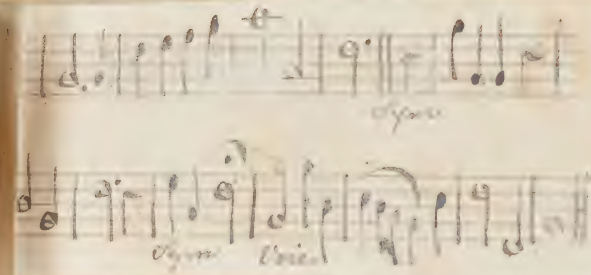 Sym
Sym Voice